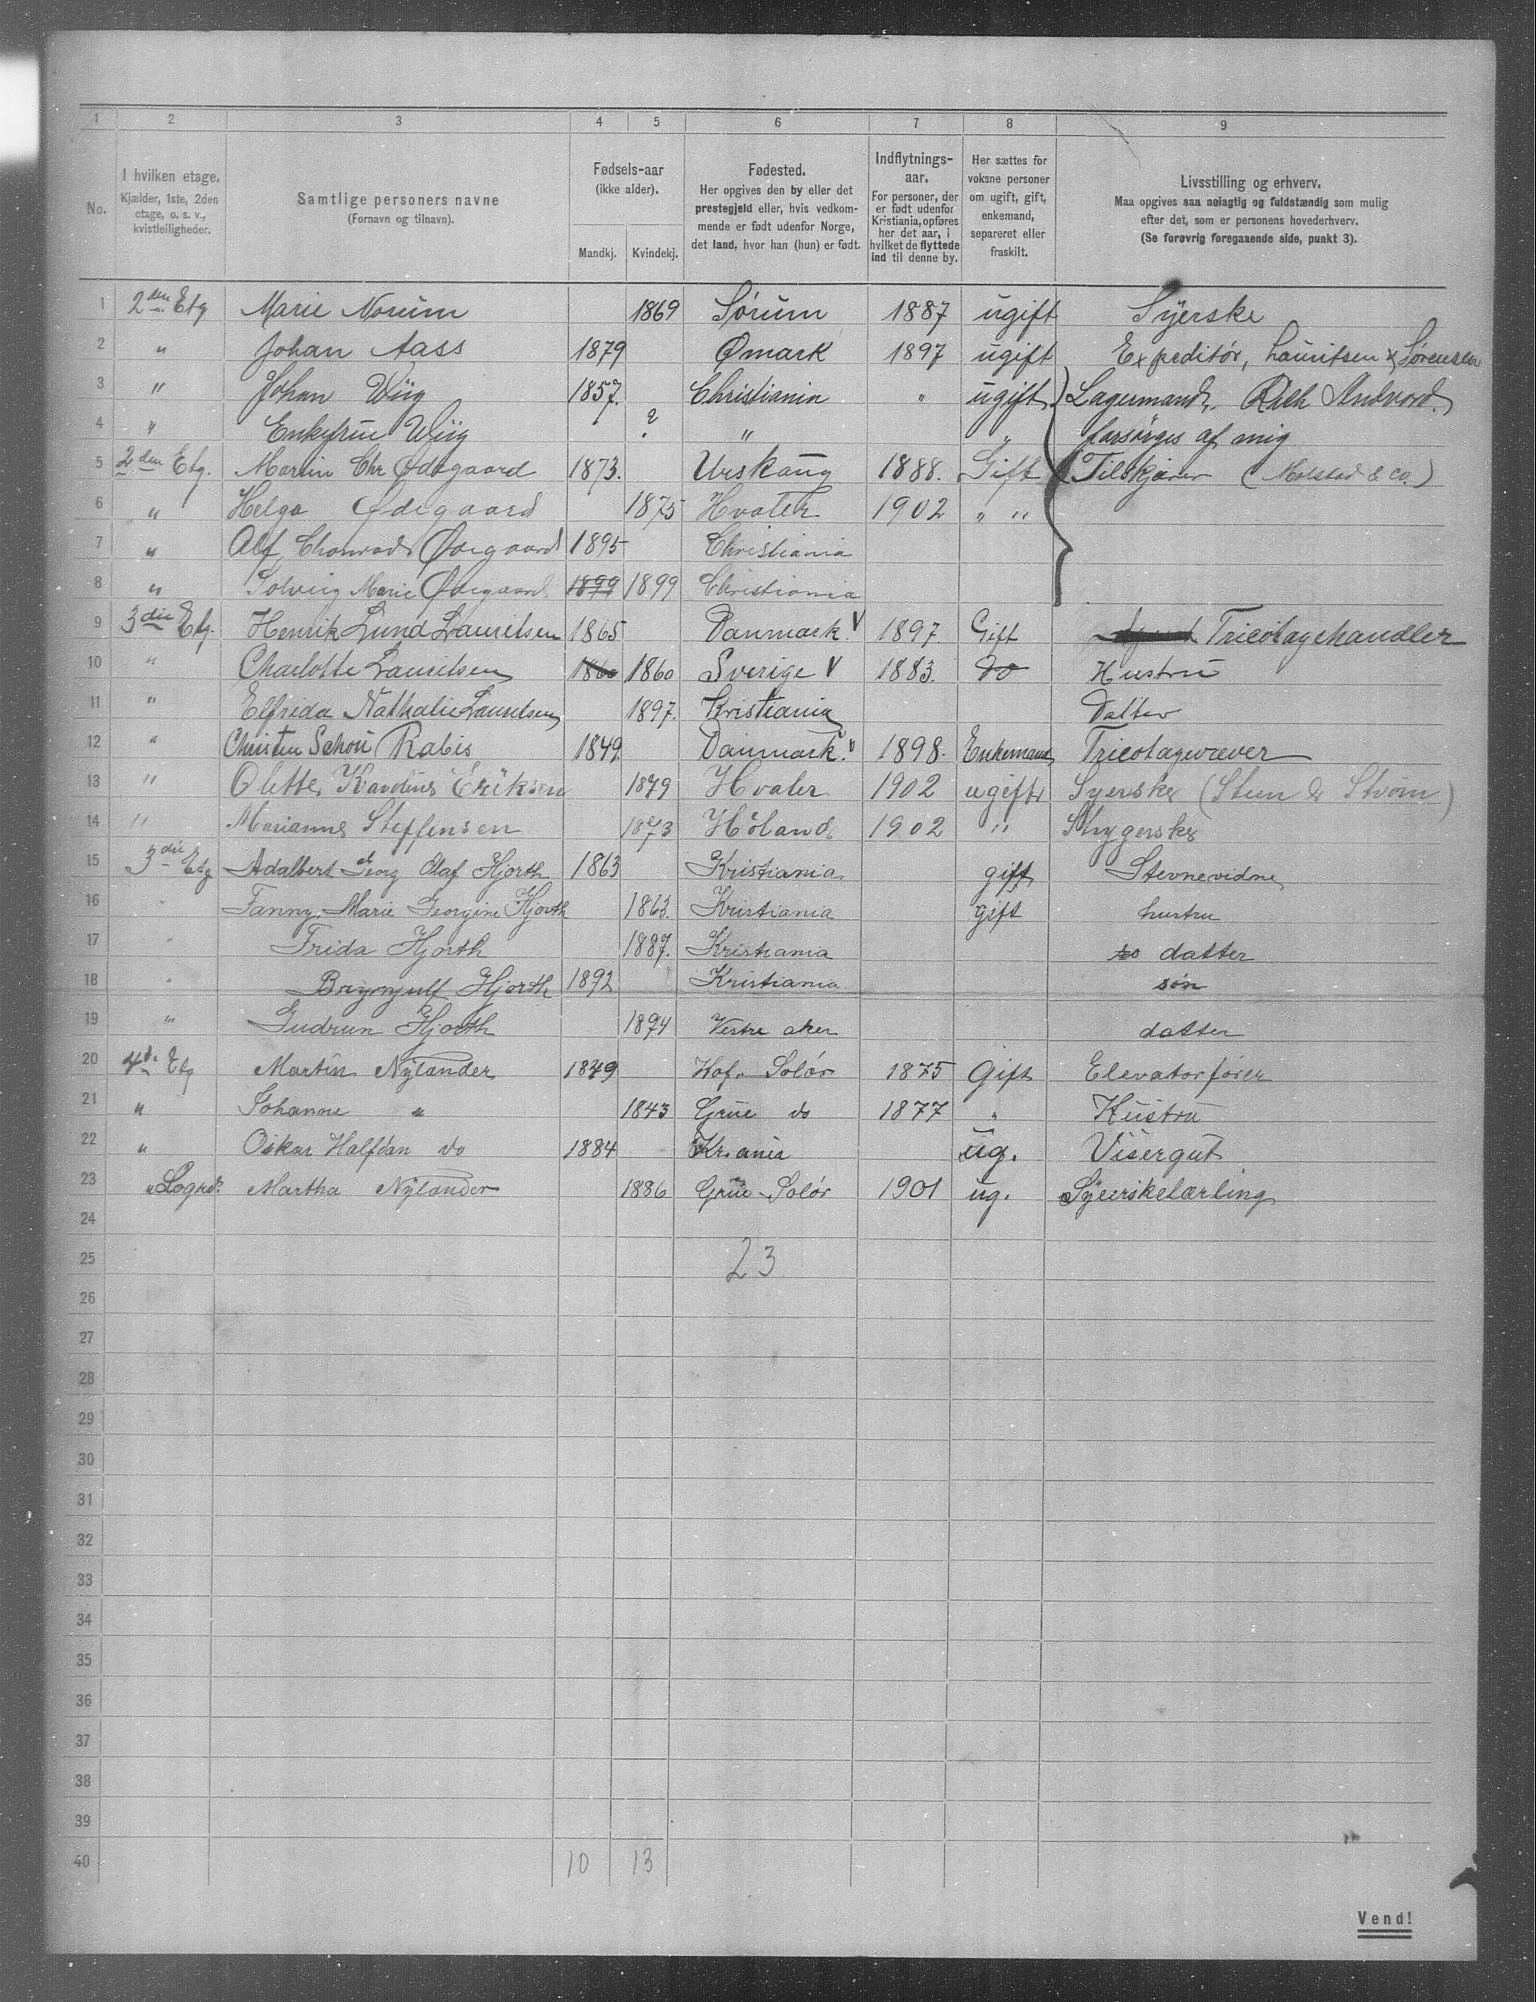 1 2 3 4 5 6 7 8 9
No.
I hvilken etage.
Kjælder, 1ste, 2den
etage, o. s. v.,
kvistleiligheder.
Samtlige personers navne
(Fornavn og tilnavn).
Fødsels-aar
(ikke alder).
Mandkj. Kvindekj.
Fødested.
Her opgives den by eller det
prestegjeld eller, hvis vedkom-
mende er født udenfor Norge,
det land, hvor han (hun) er født.
Indflytnings-
aar.
For personer, der
er født udenfor
Kristiania, opføres
her det aar, i
hvilket de flyttede
ind til denne by.
Her sættes for
voksne personer
om ugift, gift,
enkemand,
separeret eller
fraskilt.
Livsstilling og erhverv.
Maa opgives saa nøiagtig og fuldstændig som mulig
efter det, som er personens hovederhverv.
(Se forøvrig foregaaende side, punkt 3).
1 2den Etg Marie Norum 1869 Sørum 1887 ugift Syerske
2 " Johan Aass 1879 Ømark 1897 ugift Expeditør, Lauritsen & Sørensen
3 " Johan Wiig 1857. Christiania " ugift Lagermand,
4 " Wiig ? " " forsørges af mig
5 2den Etg. Martin Chr Ødegaard 1873. Urskoug 1888. Gift Tilskjærer (Molstad & co.)
6 " Helga Ødegaard 1875 Hvaler 1902 " "
7 " Alf Chonrad Ødegaard 1895 Christiania
8 " Solveig Marie Ødegaard 1899 1899 Christiania
9 3die Etg. Henrik Lund Lauritsen 1865 Danmark. V 1897 Gift Tricotagehandler
10 " Charlotte Lauritsen 1860 1860 Sverige V 1883. do Hustru
11 " Elfrida Nathalie Lauritsen 1897. Kristiania Datter
12 " Christen Schou Rabis 1849. Danmark. V 1898. Enkemand Tricotagevæver
13 " Olette Eriksen 1879 Hvaler 1902 ugift Syerske (Steen & Strøm)
14 " Marianne Steffensen 1873 Höland 1902 " Strygerske
15 3die Etg Adalbert Georg Olaf Hjorth 1863 Kristiania gift Stevnevidne
16 " Fanny Marie Georgine Hjorth 1863. Kristiania gift hustru
17 " Frida Hjorth 1887. Kristiania datter
18 " Brynjulf Hjorth 1892 Kristiania søn
19 " Gudrun Hjorth 1894 Vestre aker datter
20 4d. Etg Martin Nylander 1849 Hof. Solør 1875 Gift Elevatorfører
21 " Johanne " 1843 Grue do 1877 " Hustru
22 " Oskar Halfdan do 1884 Kr.ania ug. Visergut
23 " Logrd. Martha Nylander 1886 Grue Solør 1901 ug. Syerskelærling
24
25 23
26
27
28
29
30
31
32
33
34
35
36
37
38
39
40 10 13
Vend!